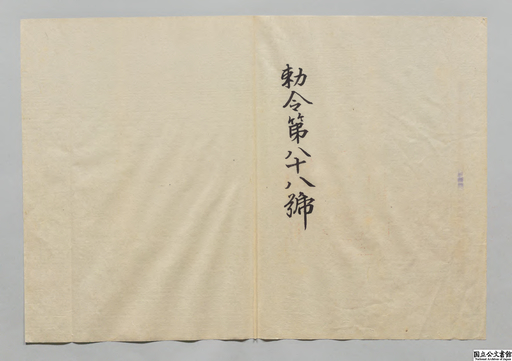 勅令第八十八號
国立公文書館
National Archives of Japan